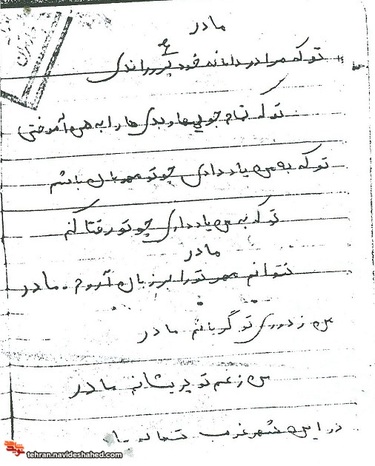 مادر
تو که مرا در دامانه خود پروراندی
تو که تمام خوبی‌ها و بدی ها را به من آموختی
تو که به من یاد دادی چو تو مهربان باشم
تو که به من یاد دادی چو تو رفتار کنم
مادر
نتوانم مهر تو را بر زبان آورم - مادر
من ز دوری تو گریانم مادر
من ز غم تو پریشانم مادر
در این شهر غریب تنها
tehran.navideshahed.com